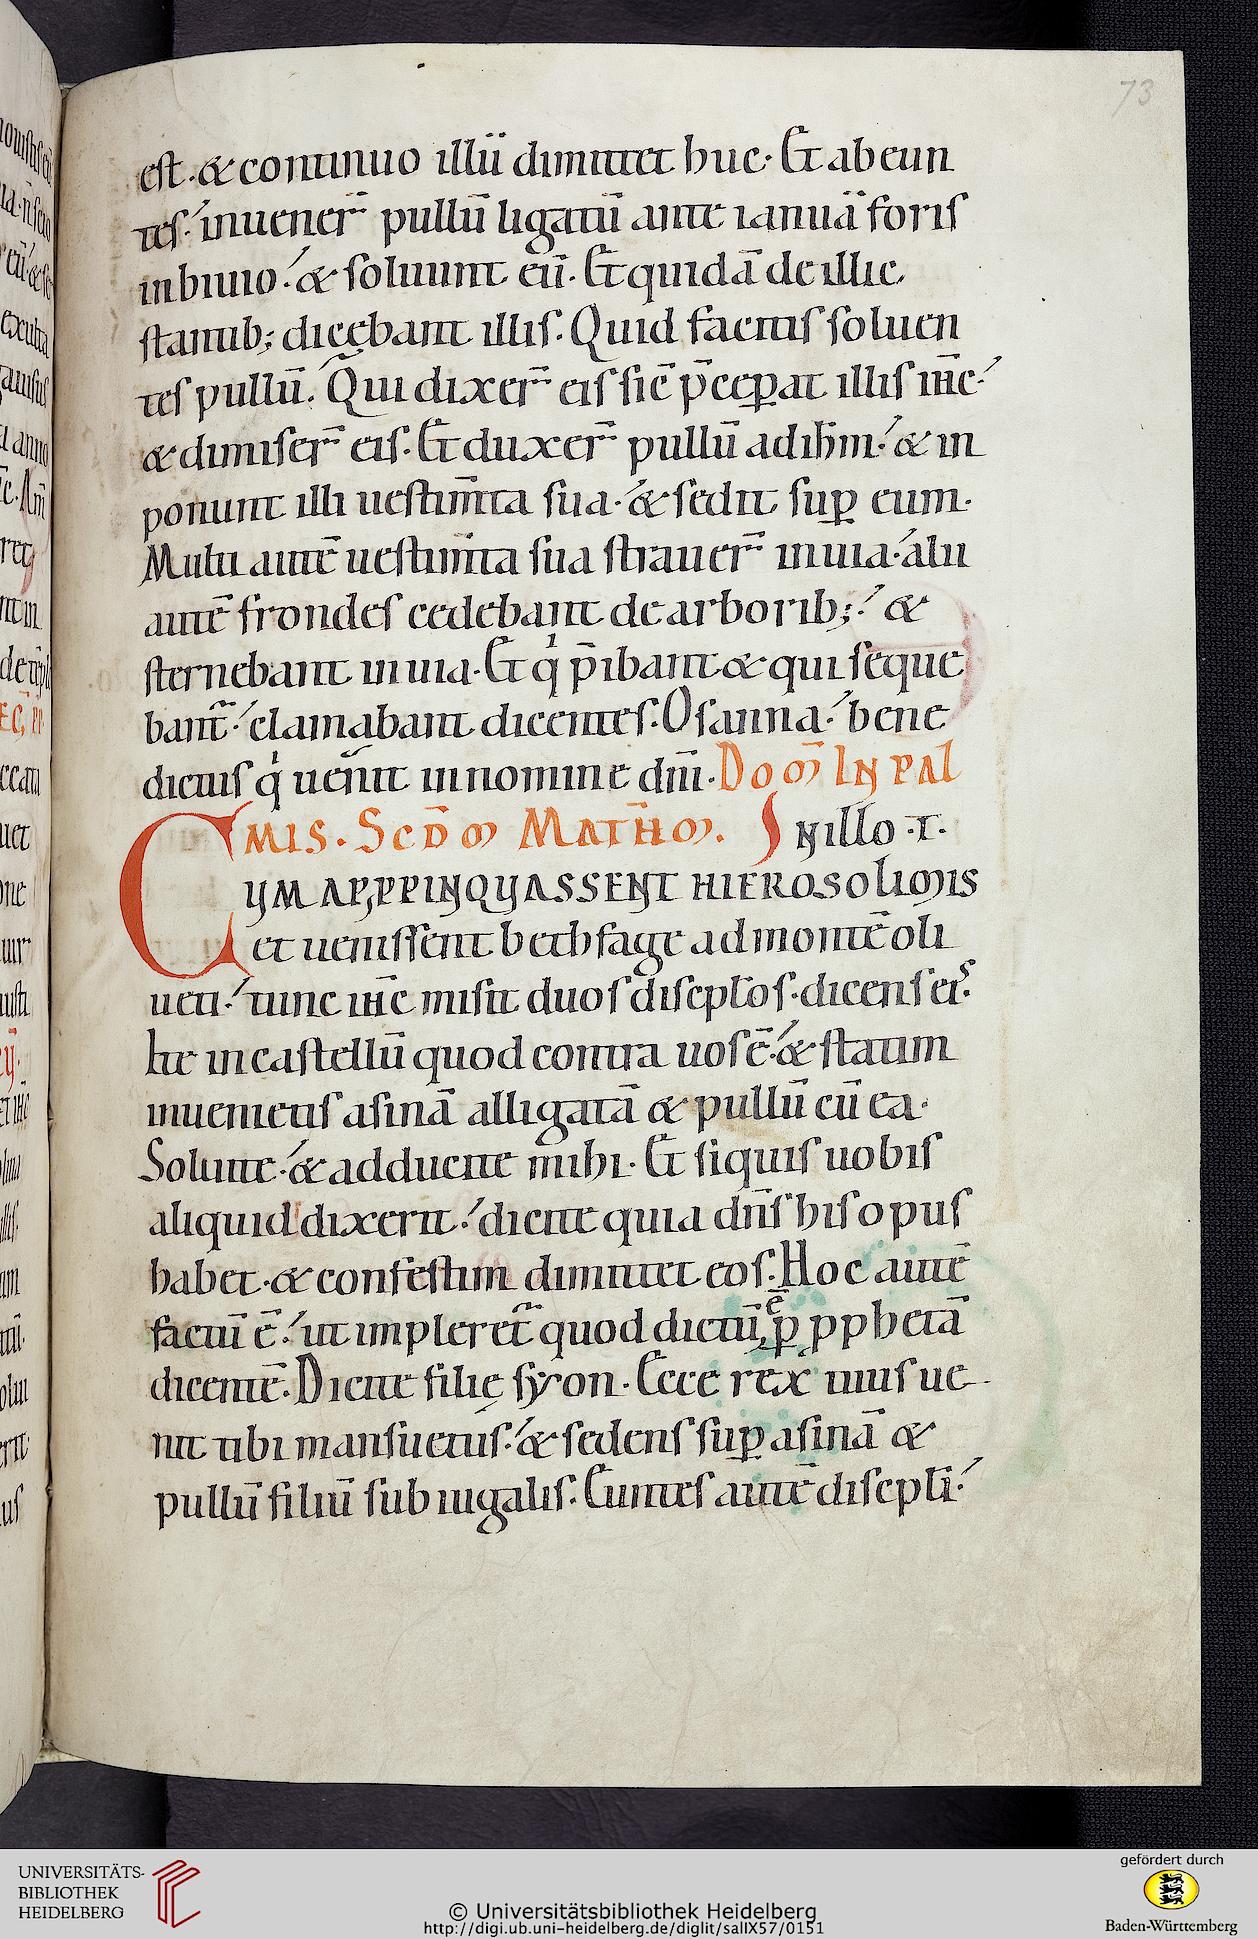 73
est. & continuo illū dimittet huc. Et abeun
tes. inuener̄ pullū ligatū ante ianuā foris
in biuio. & soluunt eū. Et quidā de illic
stantib; dicebant illis. Quid facitis soluen
tes pullū. Qui dixer̄ eis sic̄ p̄ceꝑat illis ih̄c.
& dimiser̄ eis. Et duxer̄ pullū ad ih̄m. & in
ponunt illi uestim̄ta sua. & sedit suꝑ eum.
Multi autē uestim̄ta sua strauer̄ in uia. alii
autē frondes cedebant de arborib; &
sternebant in uia. Et qͥ p̄ibant & qui seque
bant̄. clamabant dicentes. Osanna. bene
dictus qͥ uenit in nomine dnī. Dom̄ In pal
mis. Scd̄m Math̄m. In illo .t.
Cum apꝓpinquassent hierosolimis
et uenissent bethfage ad montē oli
ueti. tunc ih̄c misit duos discipłos. dicens eis.
Ite in castellū quod contra uos ē. & statim
inuenietis asinā alligatā & pullū cū ea.
Soluite. & adducite mihi. Et siquis uobis
aliquid dixerit. dicite quia dn̄s his opus
habet. & confestim dimittet eos. Hoc autē
factū ē. ut impleret̄ quod dictū ē ꝑ ꝓphetā
dicentē. Dicite filię syon. Ecce rex tuus ue
nit tibi mansuetus. & sedens suꝑ asinā &
pullū filiū subiugalis. Euntes autē discipli.
UNIVERSITÄTS-
BIBLIOTHEK
HEIDELBERG
© Universitätsbibliothek Heidelberg
http://digi.ub.uni-heidelberg.de/diglit/salIX57/0151
gefördert durch
Baden-Württemberg